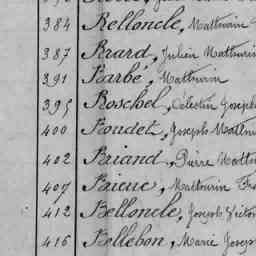 384 Belloncle, Mathurin
387 Brard, Julien Mathurin
391 Barbé, Mathurin
395 Boschel, Célestin Joseph
400 Boudet, Joseph
402 Briand, Pierre
407 Brieuc, Mathurin
412 Belloncle, Joseph Victor
416 Bellebon, Marie Joseph